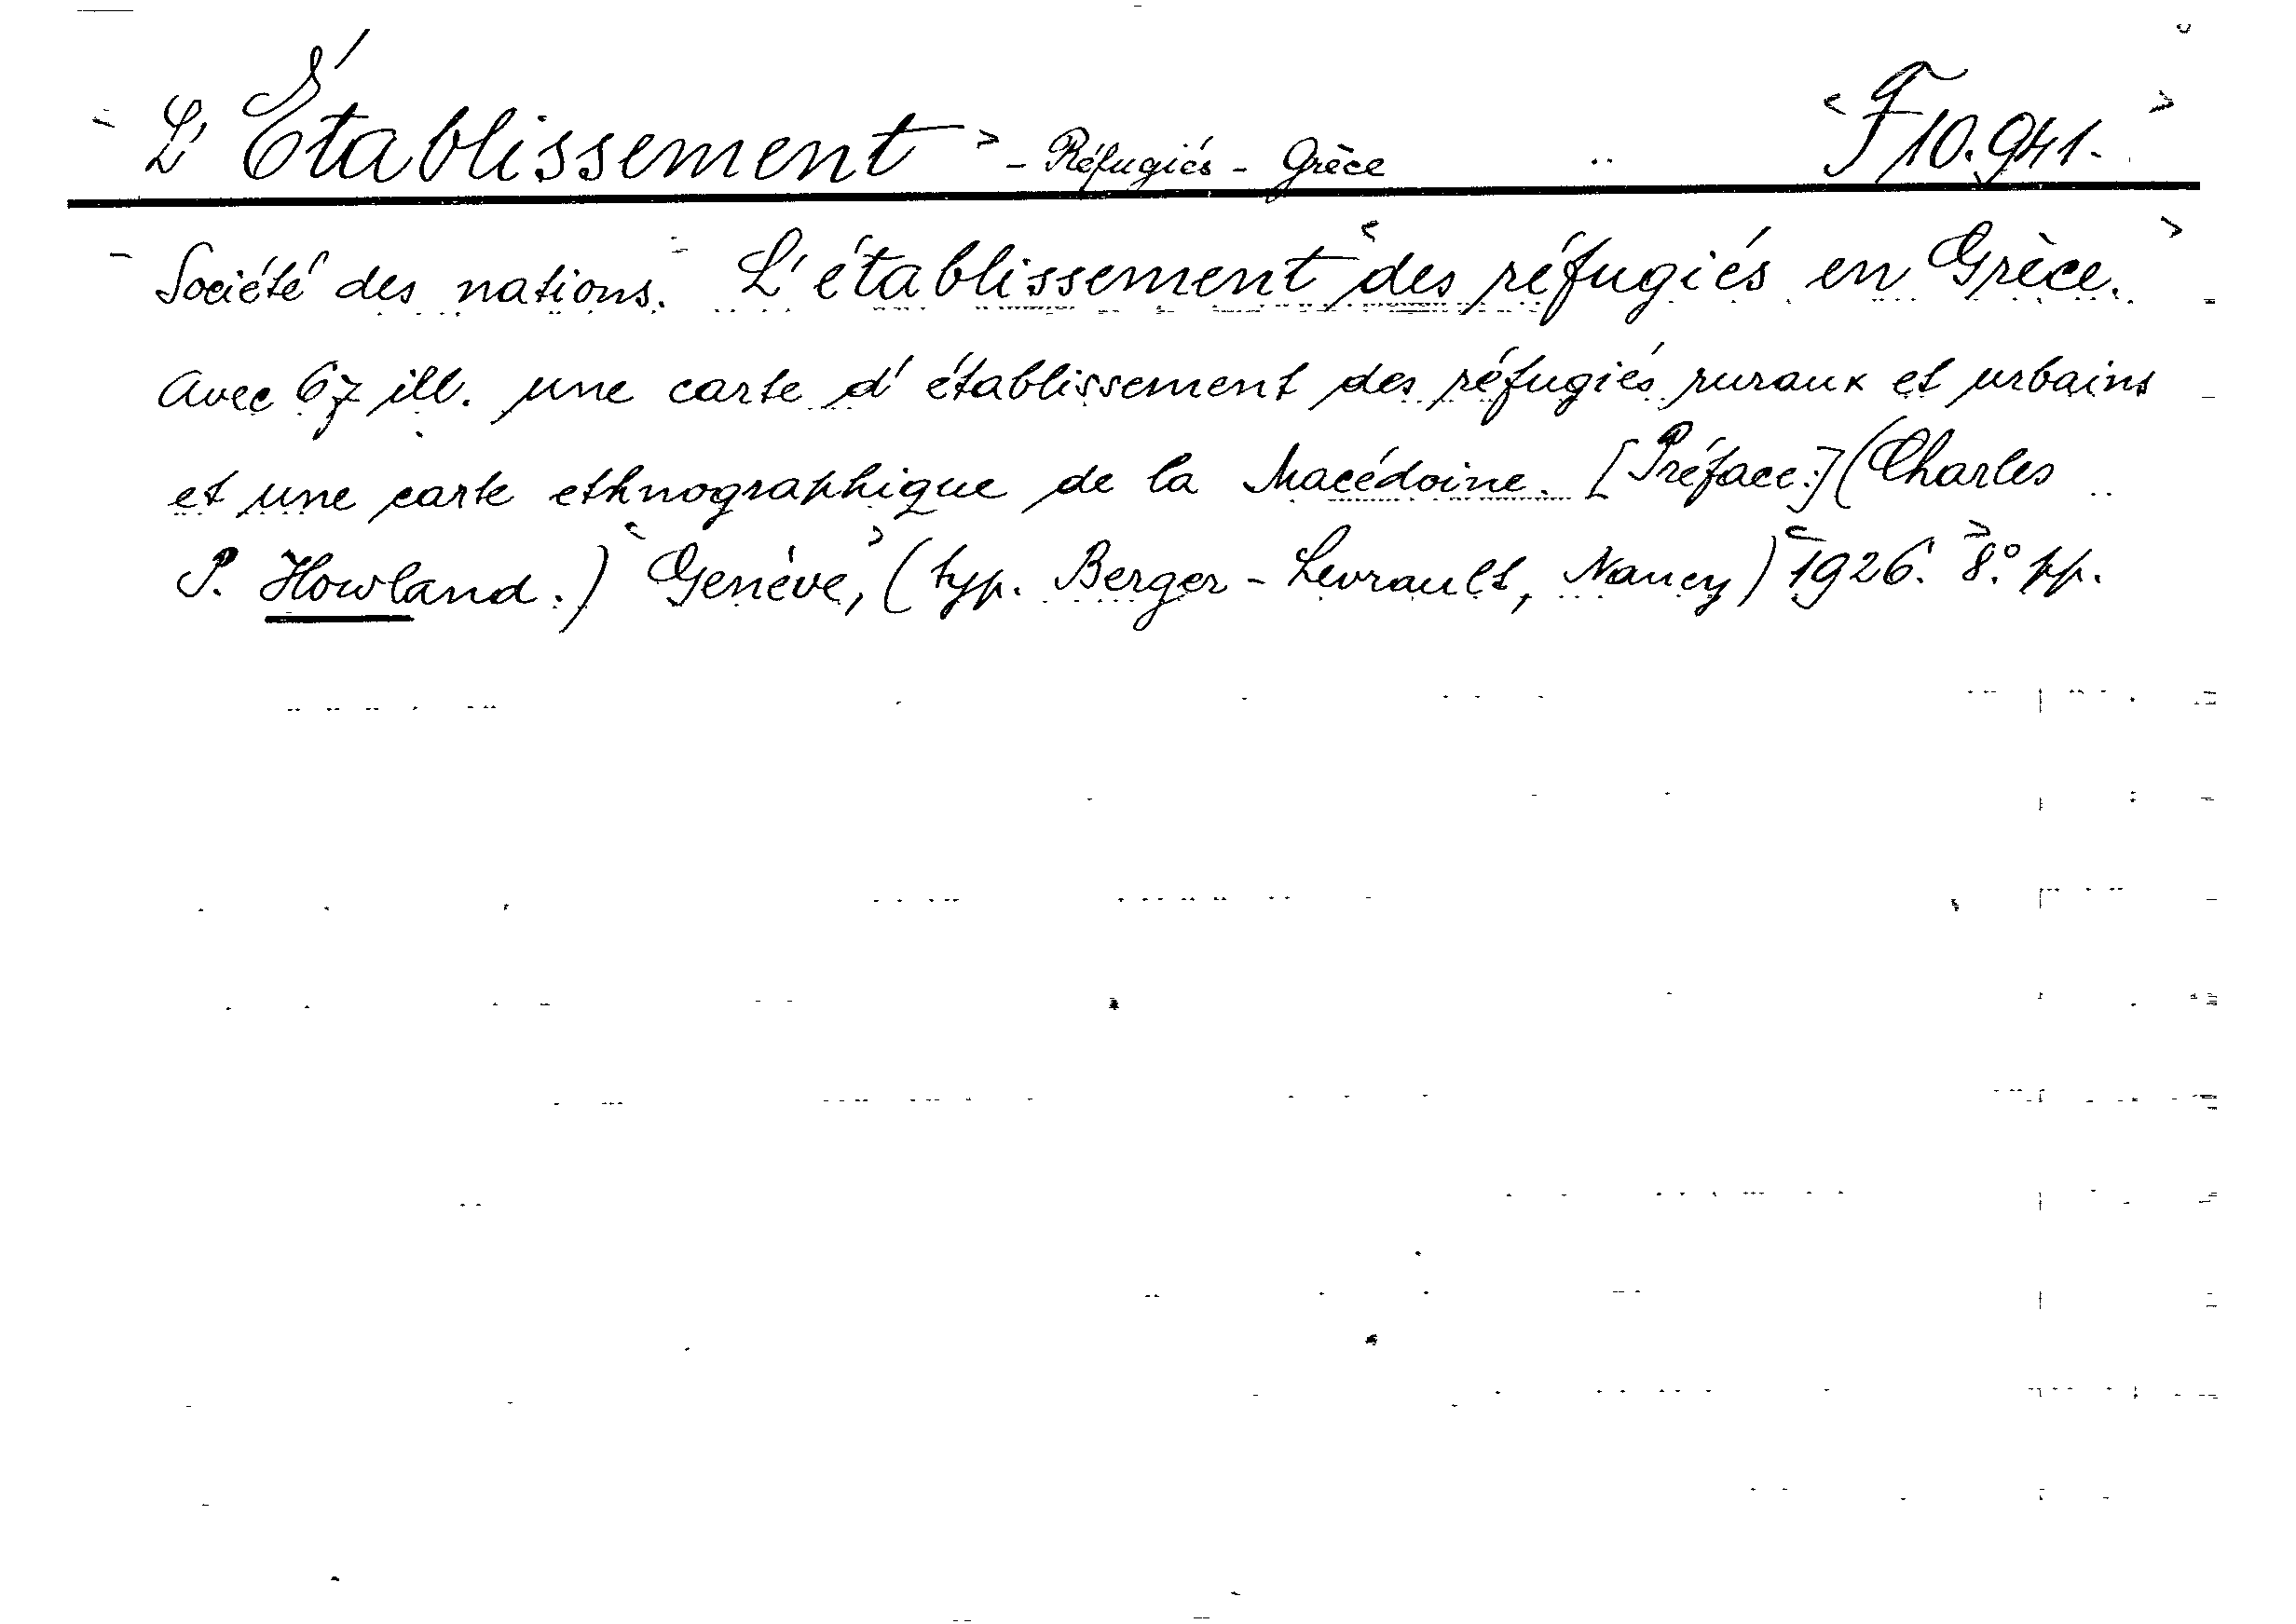 L'Établissement - Réfugiés - Grèce F 10.941.
Société des nations. L'établissement des réfugiés en Grèce.
Avec 67 ill. une carte d'établissement des réfugiés ruraux et urbains
et une carte ethnographique de la Macédoine. [Préface:] (Charles
P. Howland.) Genève, (typ. Berger-Levrault, Nancy) 1926. 8.° pp.